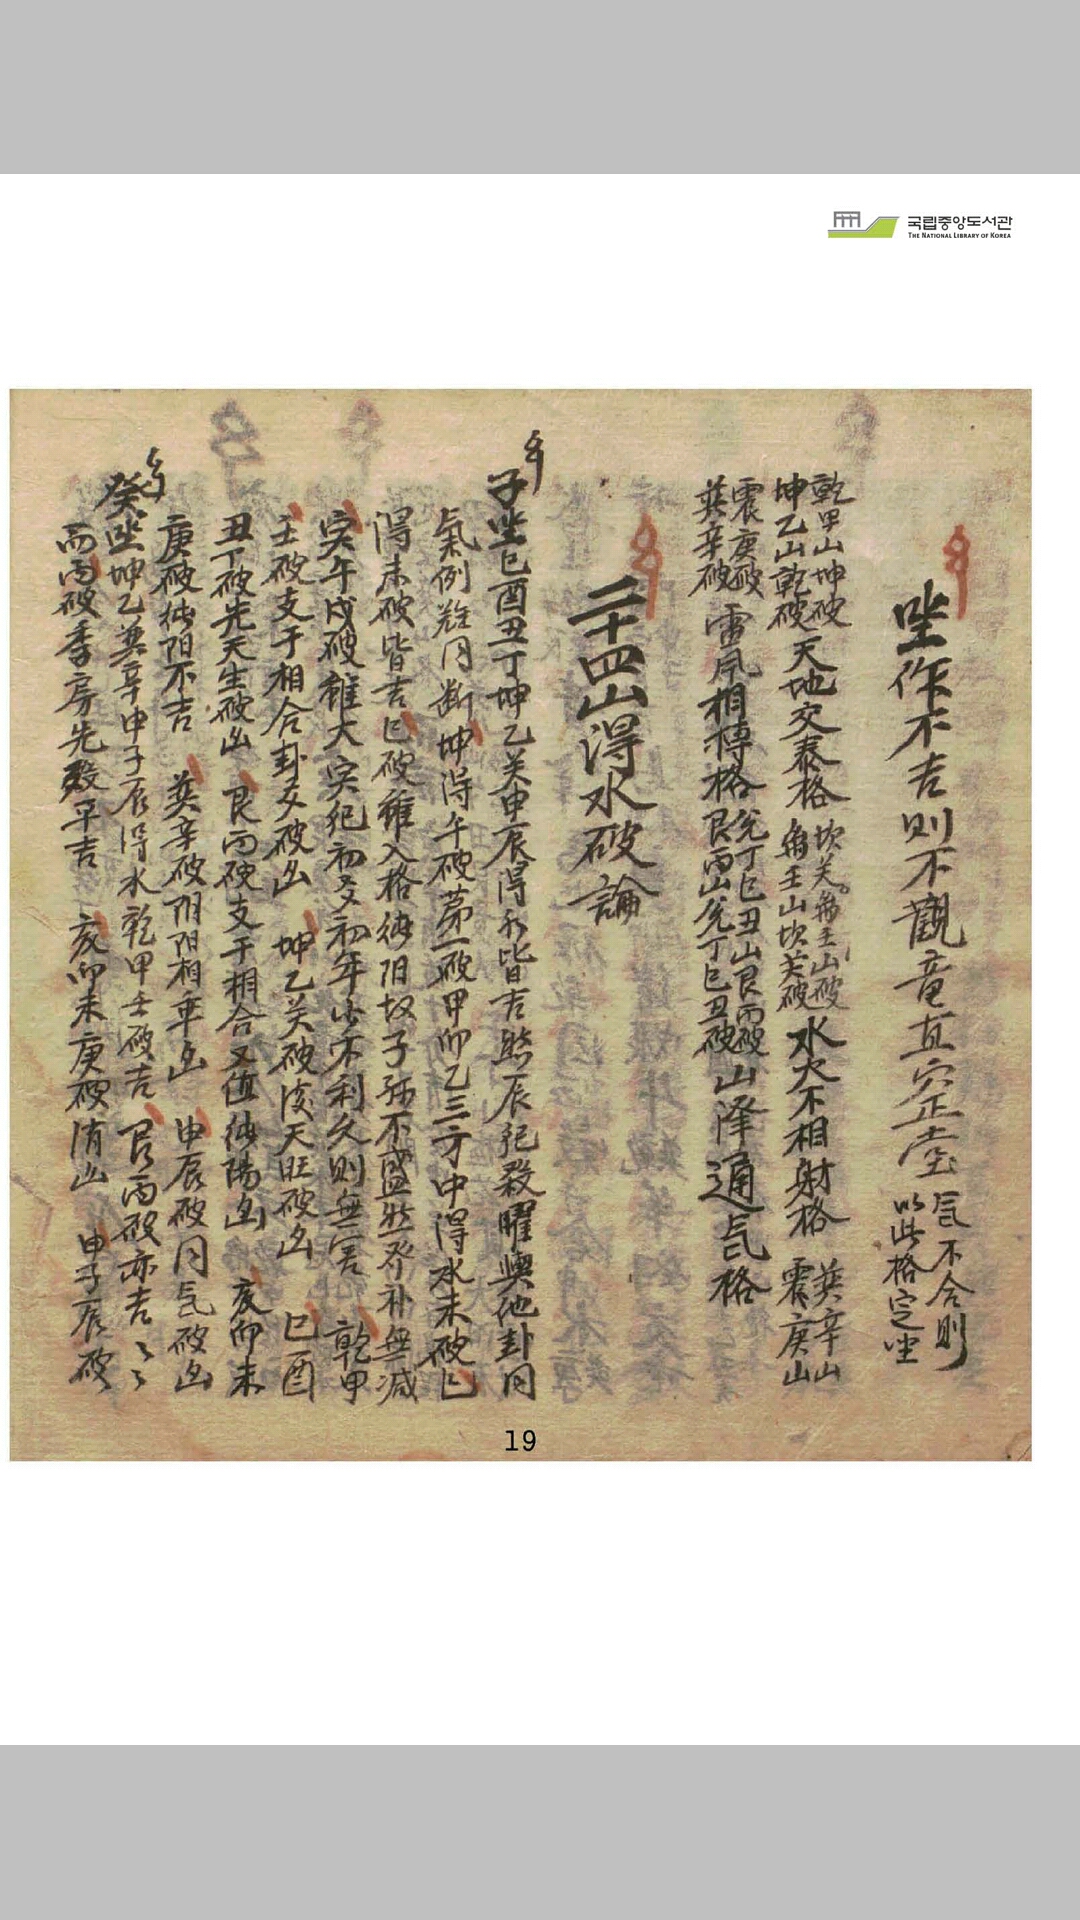 국립중앙도서관
THE NATIONAL LIBRARY OF KOREA
坐作不吉則不觀竜直穴正堂 气不合則
以此格定坐
乾甲山坤破
坤乙山乾破 天地交泰格 坎癸 山破
壬山坎癸破 水火不相射格 巽辛山
震庚山
震庚破
巽辛破 雷風相搏格 兌丁巳丑山艮丙破
艮丙山兌丁巳丑破 山泽通气格
二十四山得水破論
子坐巳酉丑丁坤乙癸申辰得水皆吉然辰犯殺曜與他卦同
氣例難同断坤得午破苐一破甲卯乙三方中得水未破巳
得未破皆吉巳破雖入格 阳故子孫不盛 补無减
寅午戌破雖大 犯初爻初年少不利久則無害 乾甲
壬破支干相合卦爻破凶 坤乙癸破後天旺破凶 巳酉
丑丁破先天生破凶 艮丙破支干相合又值 陽凶 亥卯未
庚破 阳不吉 巽辛破阴阳相乖凶 申辰破同气破凶
癸坐坤乙巽辛申子辰得水乾甲壬破吉 艮丙破亦吉
丙破季房先 平吉 亥卯未庚破 凶 申子辰破
19